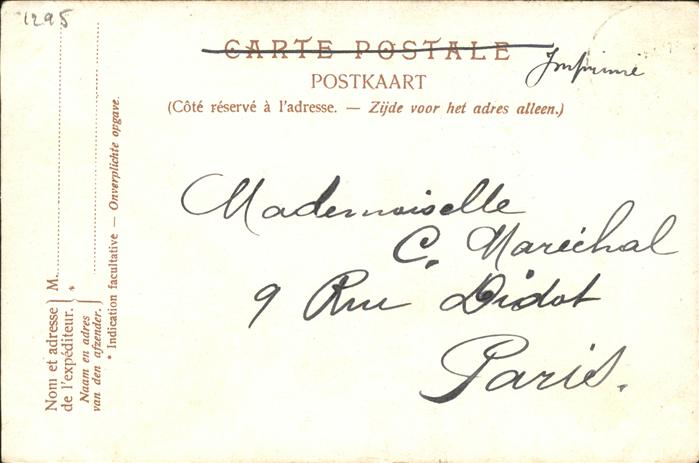 1295
CARTE POSTALE
Imprimé
POSTKAART
(Côté réservé à l'adresse. — Zijde voor het adres alleen.)
Mademoiselle
C. Maréchal
9 Rue Didot
Paris.
Nom et adresse
de l'expéditeur. } M.
Naam en adres
van den afzender. } *
* Indication facultative — Onverplichte opgave.